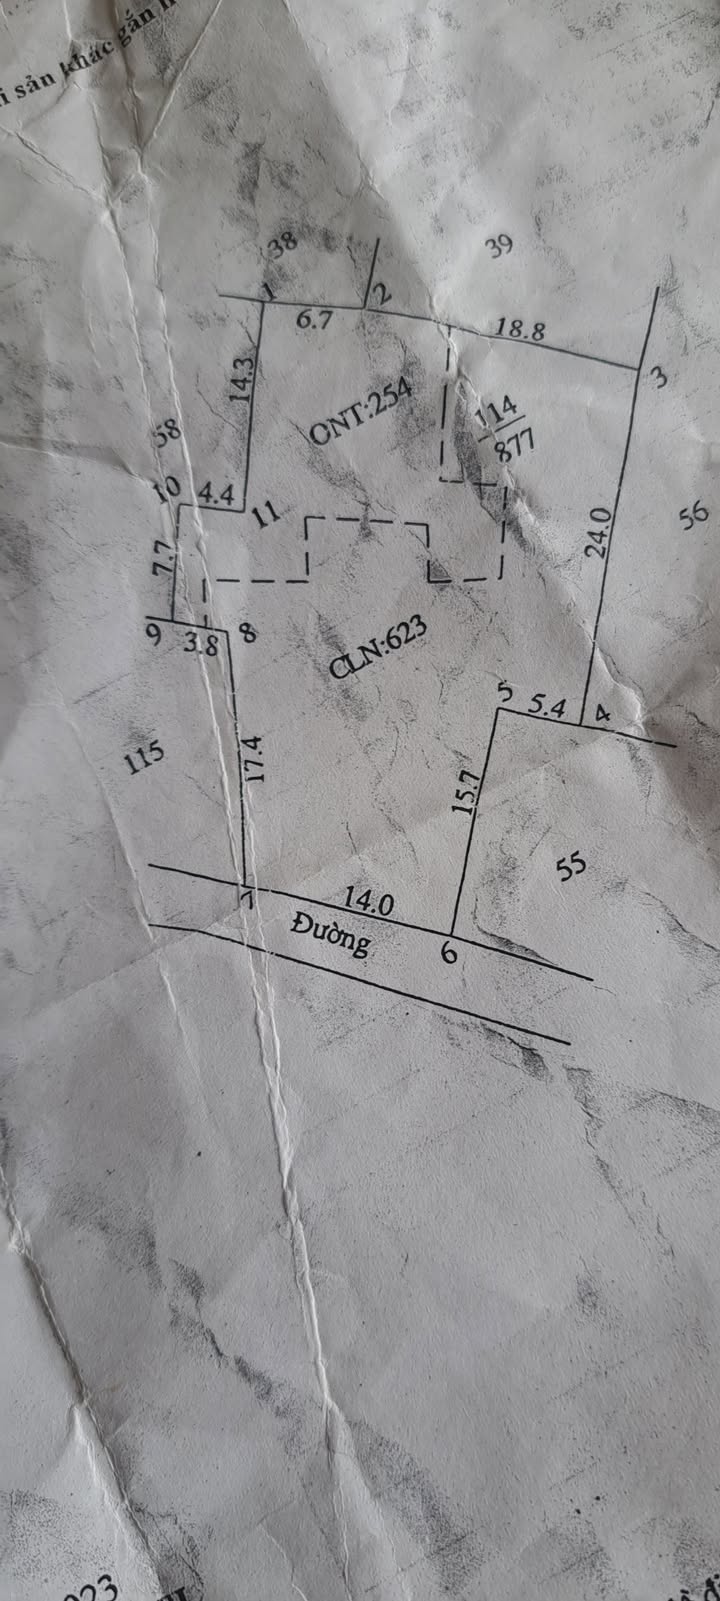 sản khác gắn
38
39
1
2
6.7
18.8
3
14.3
ONT:254
114
877
58
10
4.4
11
24.0
56
7.7
9
3.8
8
CLN:623
5
5.4
4
115
17.4
15.7
55
7
14.0
Đường
6